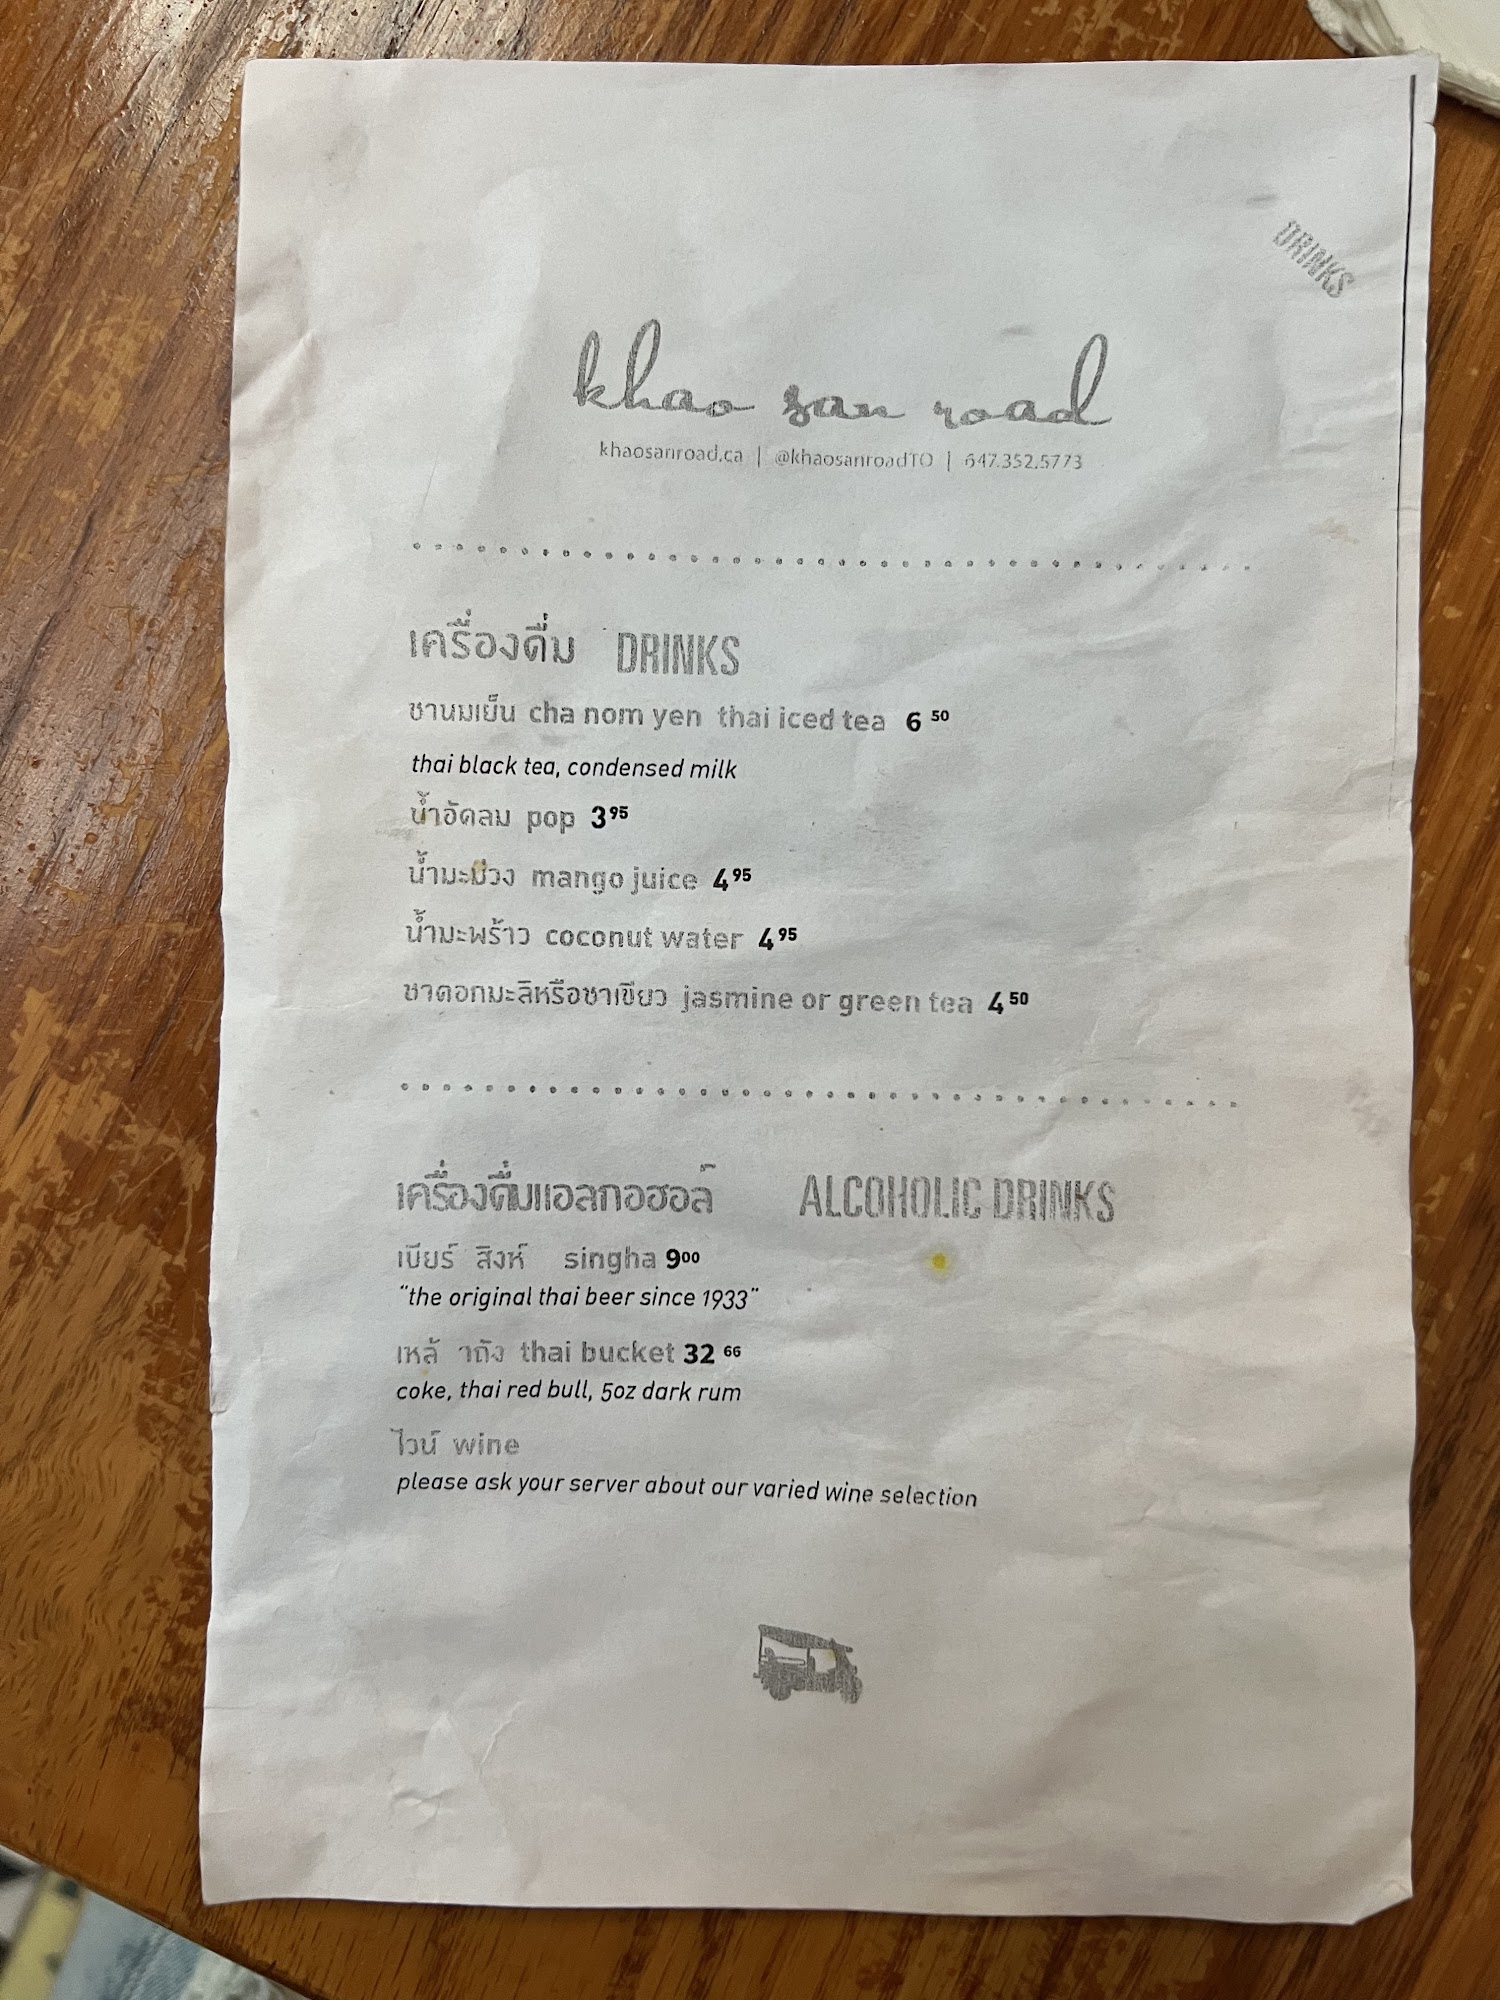 DRINKS
khao san road
khaosanroad.ca | @khaosanroadTO | 647.352.5773
เครื่องดื่ม DRINKS
ชานมเย็น cha nom yen thai iced tea 6 50
thai black tea, condensed milk
น้ำอัดลม pop 3 95
น้ำมะม่วง mango juice 4 95
น้ำมะพร้าว coconut water 4 95
ชาดอกมะลิหรือชาเขียว jasmine or green tea 4 50
เครื่องดื่มแอลกอฮอล์ ALCOHOLIC DRINKS
เบียร์ สิงห์ singha 9 00
"the original thai beer since 1933"
เหล้ าถัง thai bucket 32 66
coke, thai red bull, 5oz dark rum
ไวน์ wine
please ask your server about our varied wine selection